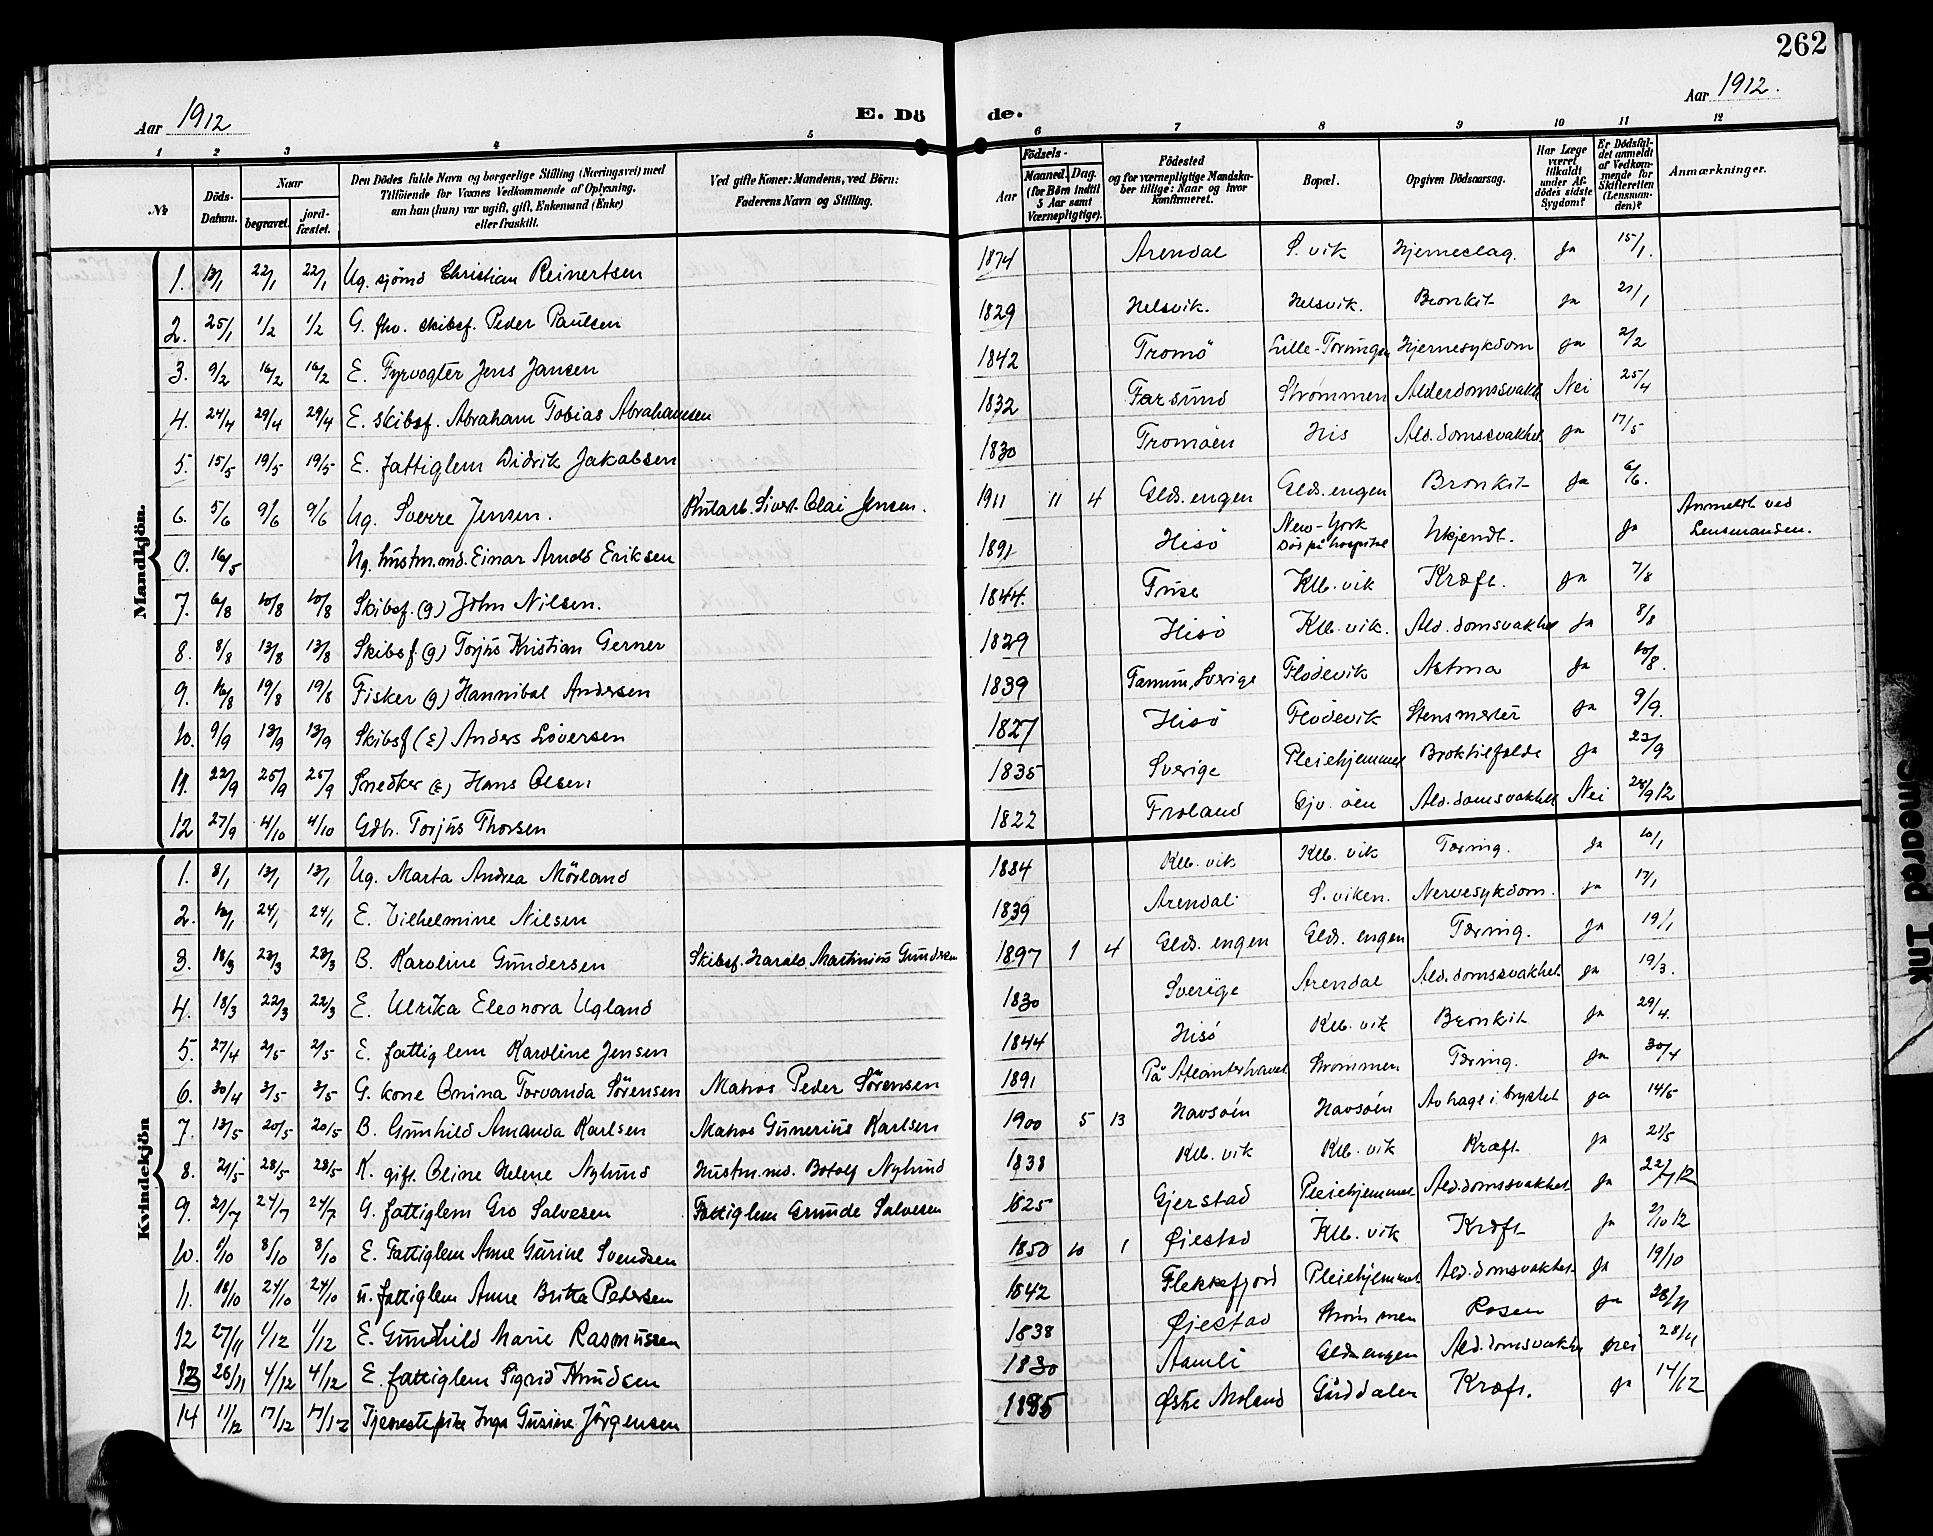 262
Aar 1912
E. Dö de.
Aar 1912.
1 2 3 4 5 6 7 8 9 10 11 12
№ Döds-Datum. Naar begravet. jord-fæstet. Den Dödes fulde Navn og borgerlige Stilling (Næringsvei) med Tilföiende for Voxnes Vedkommende af Oplysning, om han (hun) var ugift, gift, Enkemand (Enke) eller fraskilt. Ved gifte Koner: Mandens, ved Börn: Faderens Navn og Stilling. Födsels- Aar Maaned. Dag. (for Børn indtil 5 Aar samt Værnepligtige). Födested og for værnepligtige Mandskaber tillige: Naar og hvor konfirmeret. Bopæl. Opgiven Dödsaarsag. Har Læge været tilkaldt under Afdödes sidste Sygdom? Er Dödsfaldet anmeldt af Vedkommende for Skifteretten (Lensmanden)? Anmærkninger.
Mandkjön.
1. 13/1 22/1 22/1 Ug. sjömd Christian Reinertsen 1874 Arendal S. vik Hjerneslag. ja 15/1.
2. 25/1 1/2 1/2 G. fhv. skibsf. Peder Paulsen 1829 Helsvik. Helsvik. Bronkit ja 21/1
3. 9/2 16/2 16/2 E. Fyrvogter Jens Jansen 1842 Tromö Lille-Torungen Hjernesykdom ja 2/2
4. 24/4 29/4 29/4 E. skibsf. Abraham Tobias Abrahamsen 1832 Farsund Strømmen Alderdomssvakh Nei 25/4
5. 15/5 19/5 19/5 E. fattiglem Didrik Jakobsen 1830 Tromöen His Ald.domssvakhet ja 17/5
6. 5/6 9/6 9/6 Ug. Sverre Jensen. Kularb. Sivert Olai Jensen. 1911 11 4 Glds.engen Glds.engen Bronkit ja 6/6.
0. 16/5 Ug. hustm.md. Einar Arnold Eriksen 1891 Hisö New-York Död på hospital Ukjendt. ja Anmeldt ved Lensmanden.
7. 6/8 10/8 10/8 Skibsf. (g) John Nilsen. 1844. Tuse Klb. vik Kræft. ja 7/8
8. 8/8 13/8 13/8 Skibsf (g) Torjus Kristian Gerner 1829 Hisö Klb. vik. Ald.domsvakhet ja 8/8
9. 16/8 19/8 19/8 Fisker (g) Hannibal Andersen 1839 Tanum, Sverige Flödevik Astma ja 10/8.
10. 9/9 13/9 13/9 Skibsf (E) Anders Siversen 1827 Hisö Flödevik Stensmerter ja 9/9.
11. 22/9 25/9 25/9 Snedker (E) Hans Olsen 1835 Sverige Pleiehjemmet Broktilfælde ja 23/9
12 27/9 4/10 4/10 Gdb. Torjus Thorsen 1822 Froland Gjv. öen Ald.domsvakhet Nei 28/9 12
Kvindekjön
1. 8/1 13/1 13/1 Ug. Marta Andrea Mörland 1884 Klb. vik Klb. vik Tæring. ja 10/1
2. 16/1 24/1 24/1 E. Vilhelmine Nilsen 1839 Arendal S. viken. Nervesykdom. ja 17/1
3. 18/3 23/3 23/3 B. Karoline Gundersen Skibsf. Harald Martinius Gundersen 1897 1 4 Glds. engen Glds. engen Tæring. ja 19/1
4. 18/3 22/3 22/3 E. Ulrika Eleonora Ugland 1830 Sverige Arendal Ald.domssvakhet ja 19/3.
5. 27/4 2/5 2/5 E. fattiglem Karoline Jensen 1844 Hisö Klb. vik Bronkit ja 29/4.
6. 30/4 3/5 3/5 G. kone Onina Torvanda Sörensen Matros Peder Sörensen 1891 På Atlanterhavet Strømmen Tæring. ja 30/4
7. 13/5 20/5 20/5 B. Gunhild Amanda Karlsen Matros Gunerius Karlsen 1900 5 13 Havsöen Havsöen Avhage i brystet ja 14/5
8. 21/5 28/5 28/5 K. gift. Oline Helene Nylund Hustm.md. Botolf Nylund 1838 Klb. vik Klb. vik Kræft. ja 21/5
9. 21/7 24/7 24/7 G. fattiglem Gro Salvesen Fattiglem Grunde Salvesen 1825 Gjerstad Pleiehjemmet Ald.domssvakhet ja 22/7 12
10. 1/10 8/10 8/10 E. Fattiglem Anne Gurine Svendsen 1850 10 1 Øiestad Klb. vik Kræft ja 2/10 12
11. 18/10 24/10 24/10 u. fattiglem Anne Britta Petersen 1842 Flekkefjord Pleiehjemmet Ald.domsvakhet. ja 19/10
12 27/11 1/12 1/12 E. Gunhild Marie Rasmussen 1838 Øiestad Strømmen Rosen ja 28/11
13 26/11 4/12 4/12 E. fattiglem Sigrid Knudsen 1830 Aamli Gldsengen Ald.domsvakhet nei 28/11
14 11/12 17/12 17/12 Tjenestepike Inga Gusine Jörgensen 1885 Østre Moland Gårddalen Kræft. ja 14/12
Smeared Ink